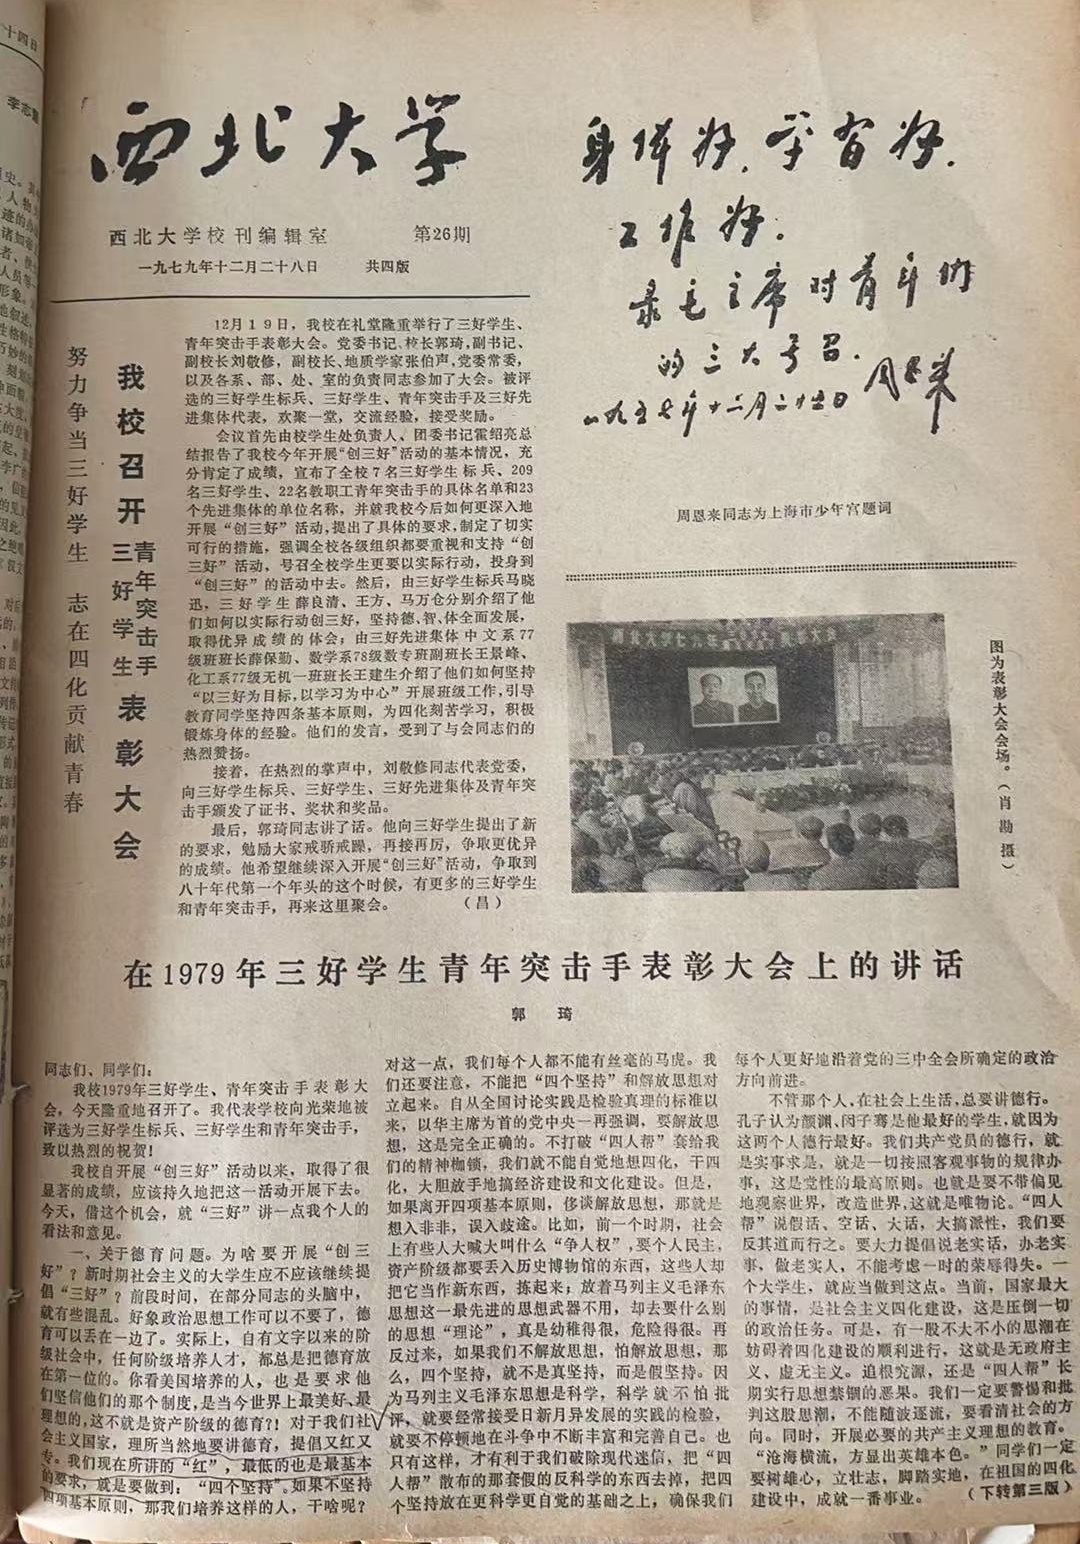 西北大学
西北大学校刊编辑室 第26期
一九七九年十二月二十八日 共四版
身体好，学习好，
工作好。
录毛主席对青年们
的三大号召。
周恩来
一九五七年十二月二十五日
周恩来同志为上海市少年宫题词
努力争当三好学生 志在四化贡献青春
我校召开三好学生青年突击手表彰大会
12月19日，我校在礼堂隆重举行了三好学生、
青年突击手表彰大会。党委书记、校长郭琦，副书记、
副校长刘敬修，副校长、地质学家张伯声，党委常委，
以及各系、部、处、室的负责同志参加了大会。被评
选的三好学生标兵、三好学生、青年突击手及三好先
进集体代表，欢聚一堂，交流经验，接受奖励。
会议首先由校学生处负责人、团委书记霍绍亮总
结报告了我校今年开展“创三好”活动的基本情况，充
分肯定了成绩，宣布了全校7名三好学生标兵、209
名三好学生、22名教职工青年突击手的具体名单和23
个先进集体的单位名称，并就我校今后如何更深入地
开展“创三好”活动，提出了具体的要求，制定了切实
可行的措施，强调全校各级组织都要重视和支持“创
三好”活动，号召全校学生更要以实际行动，投身到
“创三好”的活动中去。然后，由三好学生标兵马晓
迅，三好学生薛良清、王方、马万仓分别介绍了他
们如何以实际行动创三好，坚持德、智、体全面发展，
取得优异成绩的体会；由三好先进集体中文系77
级班班长薛保勤、数学系78级数专班副班长王景峰、
化工系77级无机一班班长王建生介绍了他们如何坚持
“以三好为目标，以学习为中心”开展班级工作，引导
教育同学坚持四条基本原则，为四化刻苦学习，积极
锻炼身体的经验。他们的发言，受到了与会同志们的
热烈赞扬。
接着，在热烈的掌声中，刘敬修同志代表党委，
向三好学生标兵、三好学生、三好先进集体及青年突
击手颁发了证书、奖状和奖品。
最后，郭琦同志讲了话。他向三好学生提出了新
的要求，勉励大家戒骄戒躁，再接再厉，争取更优异
的成绩。他希望继续深入开展“创三好”活动，争取到
八十年代第一个年头的这个时候，有更多的三好学生
和青年突击手，再来这里聚会。 （昌）
图为表彰大会会场。（肖勘摄）
在1979年三好学生青年突击手表彰大会上的讲话
郭 琦
同志们、同学们：
我校1979年三好学生、青年突击手表彰大
会，今天隆重地召开了。我代表学校向光荣地被
评选为三好学生标兵、三好学生和青年突击手，
致以热烈的祝贺！
我校自开展“创三好”活动以来，取得了很
显著的成绩，应该持久地把这一活动开展下去。
今天，借这个机会，就“三好”讲一点我个人的
看法和意见。
一、关于德育问题。为啥要开展“创三
好”？新时期社会主义的大学生应不应该继续提
倡“三好”？前段时间，在部分同志的头脑中，
就有些混乱。好象政治思想工作可以不要了，德
育可以丢在一边了。实际上，自有文字以来的阶
级社会中，任何阶级培养人才，都总是把德育放
在第一位的。你看美国培养的人，也是要求他
们坚信他们的那个制度，是当今世界上最美好、最
理想的，这不就是资产阶级的德育？！对于我们社
会主义国家，理所当然地要讲德育，提倡又红又
专。我们现在所讲的“红”，最低的也是最基本
的要求，就是要做到：“四个坚持”。如果不坚持
四项基本原则，那我们培养这样的人，干啥呢？
对这一点，我们每个人都不能有丝毫的马虎。我
们还要注意，不能把“四个坚持”和解放思想对
立起来。自从全国讨论实践是检验真理的标准以
来，以华主席为首的党中央一再强调，要解放思
想，这是完全正确的。不打破“四人帮”套给我
们的精神枷锁，我们就不能自觉地想四化，干四
化，大胆放手地搞经济建设和文化建设。但是，
如果离开四项基本原则，侈谈解放思想，那就是
想入非非，误入歧途。比如，前一个时期，社会
上有些人大喊大叫什么“争人权”，要个人民主，
资产阶级都要丢入历史博物馆的东西，这些人却
把它当作新东西，拣起来；放着马列主义毛泽东
思想这一最先进的思想武器不用，却去要什么别
的思想“理论”，真是幼稚得很，危险得很。再
反过来，如果我们不解放思想，怕解放思想，那
么，四个坚持，就不是真坚持，而是假坚持。因
为马列主义毛泽东思想是科学，科学就不怕批
评，就要经常接受日新月异发展的实践的检验，
就要不停顿地在斗争中不断丰富和完善自己。也
只有这样，才有利于我们破除现代迷信，把“四
人帮”散布的那套假的反科学的东西去掉，把四
个坚持放在更科学更自觉的基础之上，确保我们
每个人更好地沿着党的三中全会所确定的政治
方向前进。
不管那个人，在社会上生活，总要讲德行。
孔子认为颜渊、闵子骞是他最好的学生，就因为
这两个人德行最好。我们共产党员的德行，就
是实事求是，就是一切按照客观事物的规律办
事，这是党性的最高原则。也就是要不带偏见
地观察世界，改造世界，这就是唯物论。“四人
帮”说假话、空话、大话，大搞派性，我们要
反其道而行之。要大力提倡说老实话，办老实
事，做老实人，不能考虑一时的荣辱得失。一
个大学生，就应当做到这点。当前，国家最大
的事情，是社会主义四化建设，这是压倒一切
的政治任务。可是，有一股不大不小的思潮在
妨碍着四化建设的顺利进行，这就是无政府主
义、虚无主义。追根究源，还是“四人帮”长
期实行思想禁锢的恶果。我们一定要警惕和批
判这股思潮，不能随波逐流，要看清社会的方
向。同时，开展必要的共产主义理想的教育。
“沧海横流，方显出英雄本色。”同学们一定
要树雄心，立壮志，脚踏实地，在祖国的四化
建设中，成就一番事业。 （下转第三版）